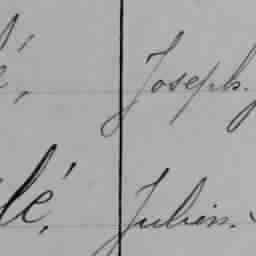 é, Joseph.
lé, Julien.